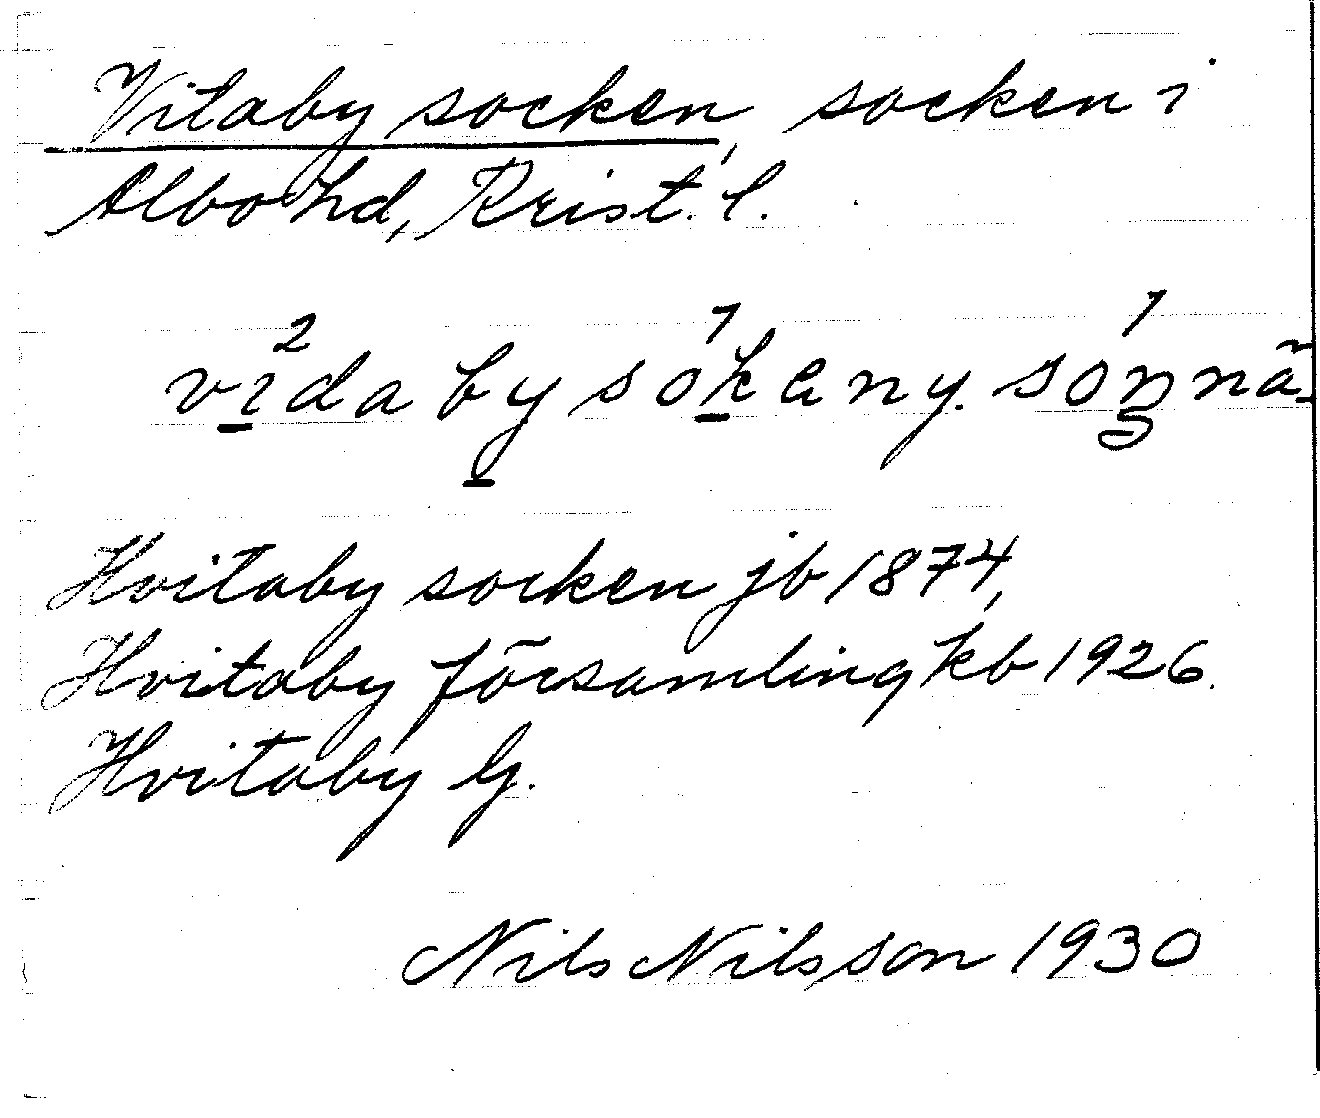 Vitaby socken, socken i
Albo hd, Krist. l.
vi²daby so¹ken y. so¹n nã-
Hvitaby socken jb 1874,
Hvitaby församling kb 1926.
Hvitaby G.
Nils Nilsson 1930